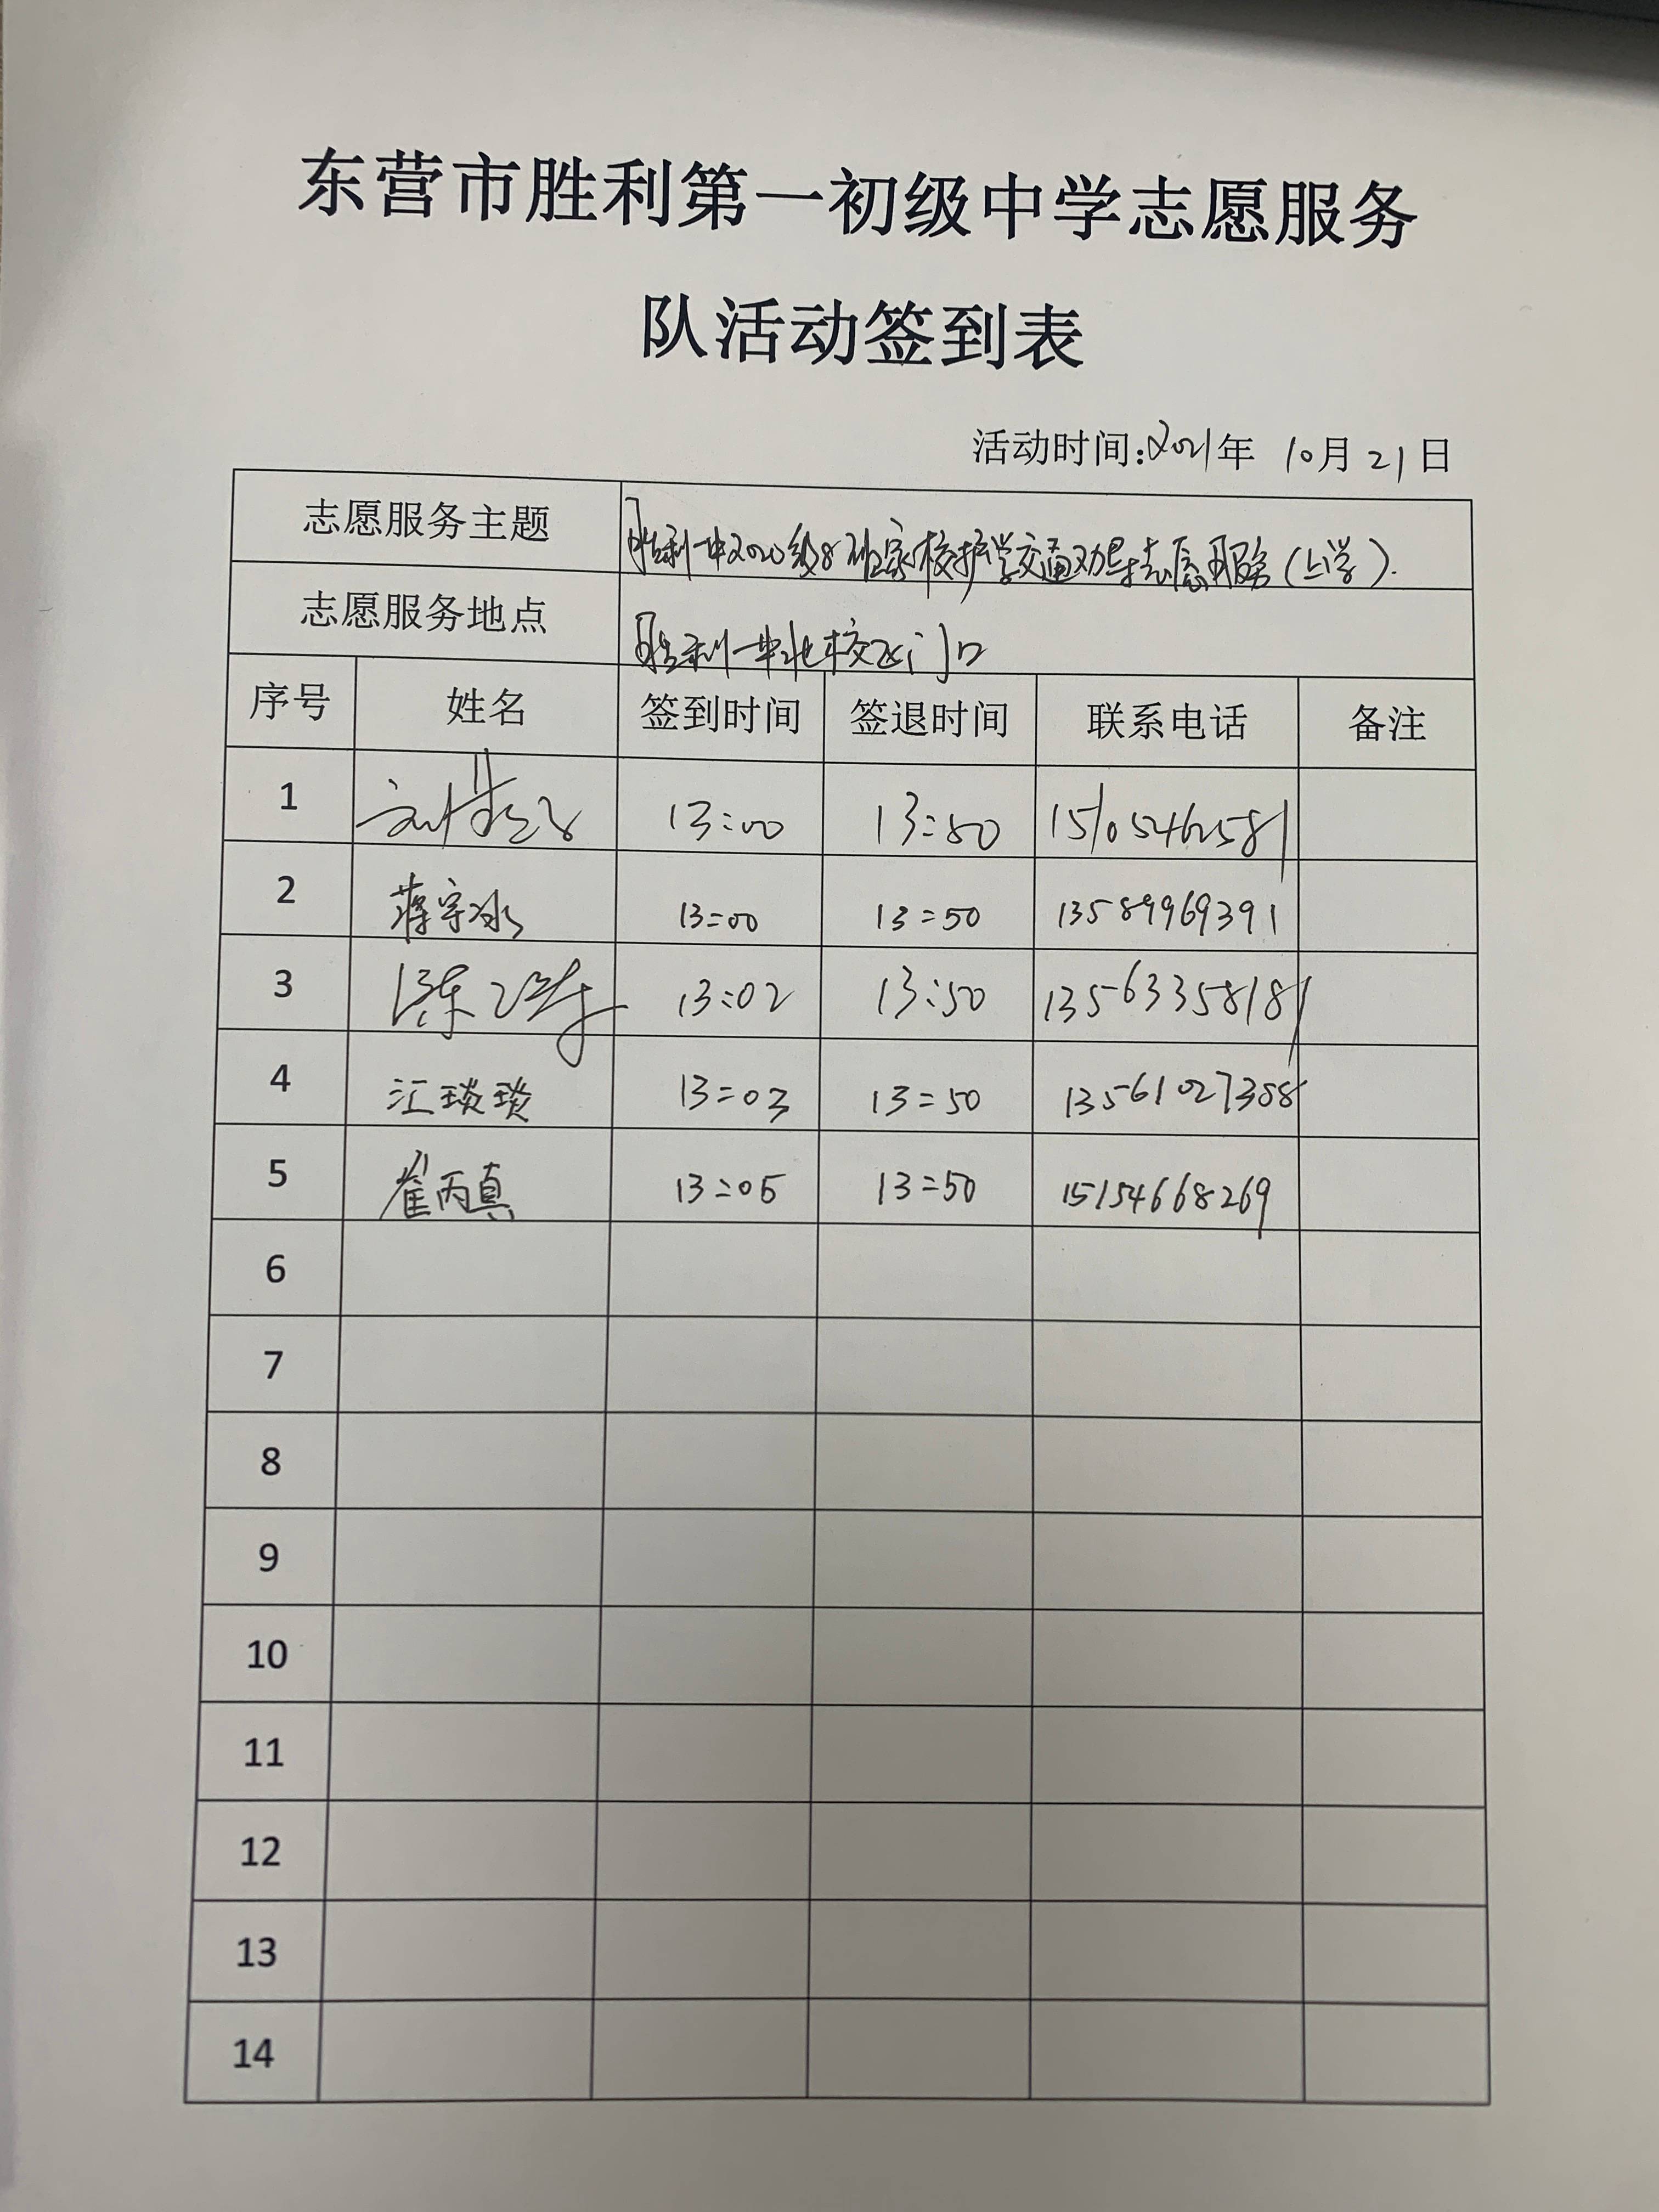 东营市胜利第一初级中学志愿服务
队活动签到表
活动时间:2021年 10月21日
志愿服务主题 胜利一中2020级8班家校护学交通劝导志愿服务(上学).
志愿服务地点 胜利一中北校区门口
序号 姓名 签到时间 签退时间 联系电话 备注
1 刘 13:00 13:50 15105462581
2 蒋宇冰 13:00 13:50 13589969391
3 陈 13:02 13:50 13563358181
4 汇琰琰 13:03 13:50 13561027358
5 崔丙真 13:05 13:50 15154668269
6
7
8
9
10
11
12
13
14